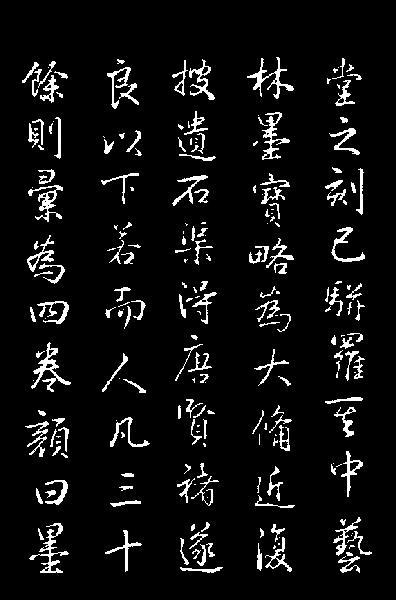 堂之刻已駢羅一室中藝
林墨寶略為大備近復
搜遺石渠得唐賢褚遂
良以下若而人凡三十
餘則彙為四卷顏曰墨